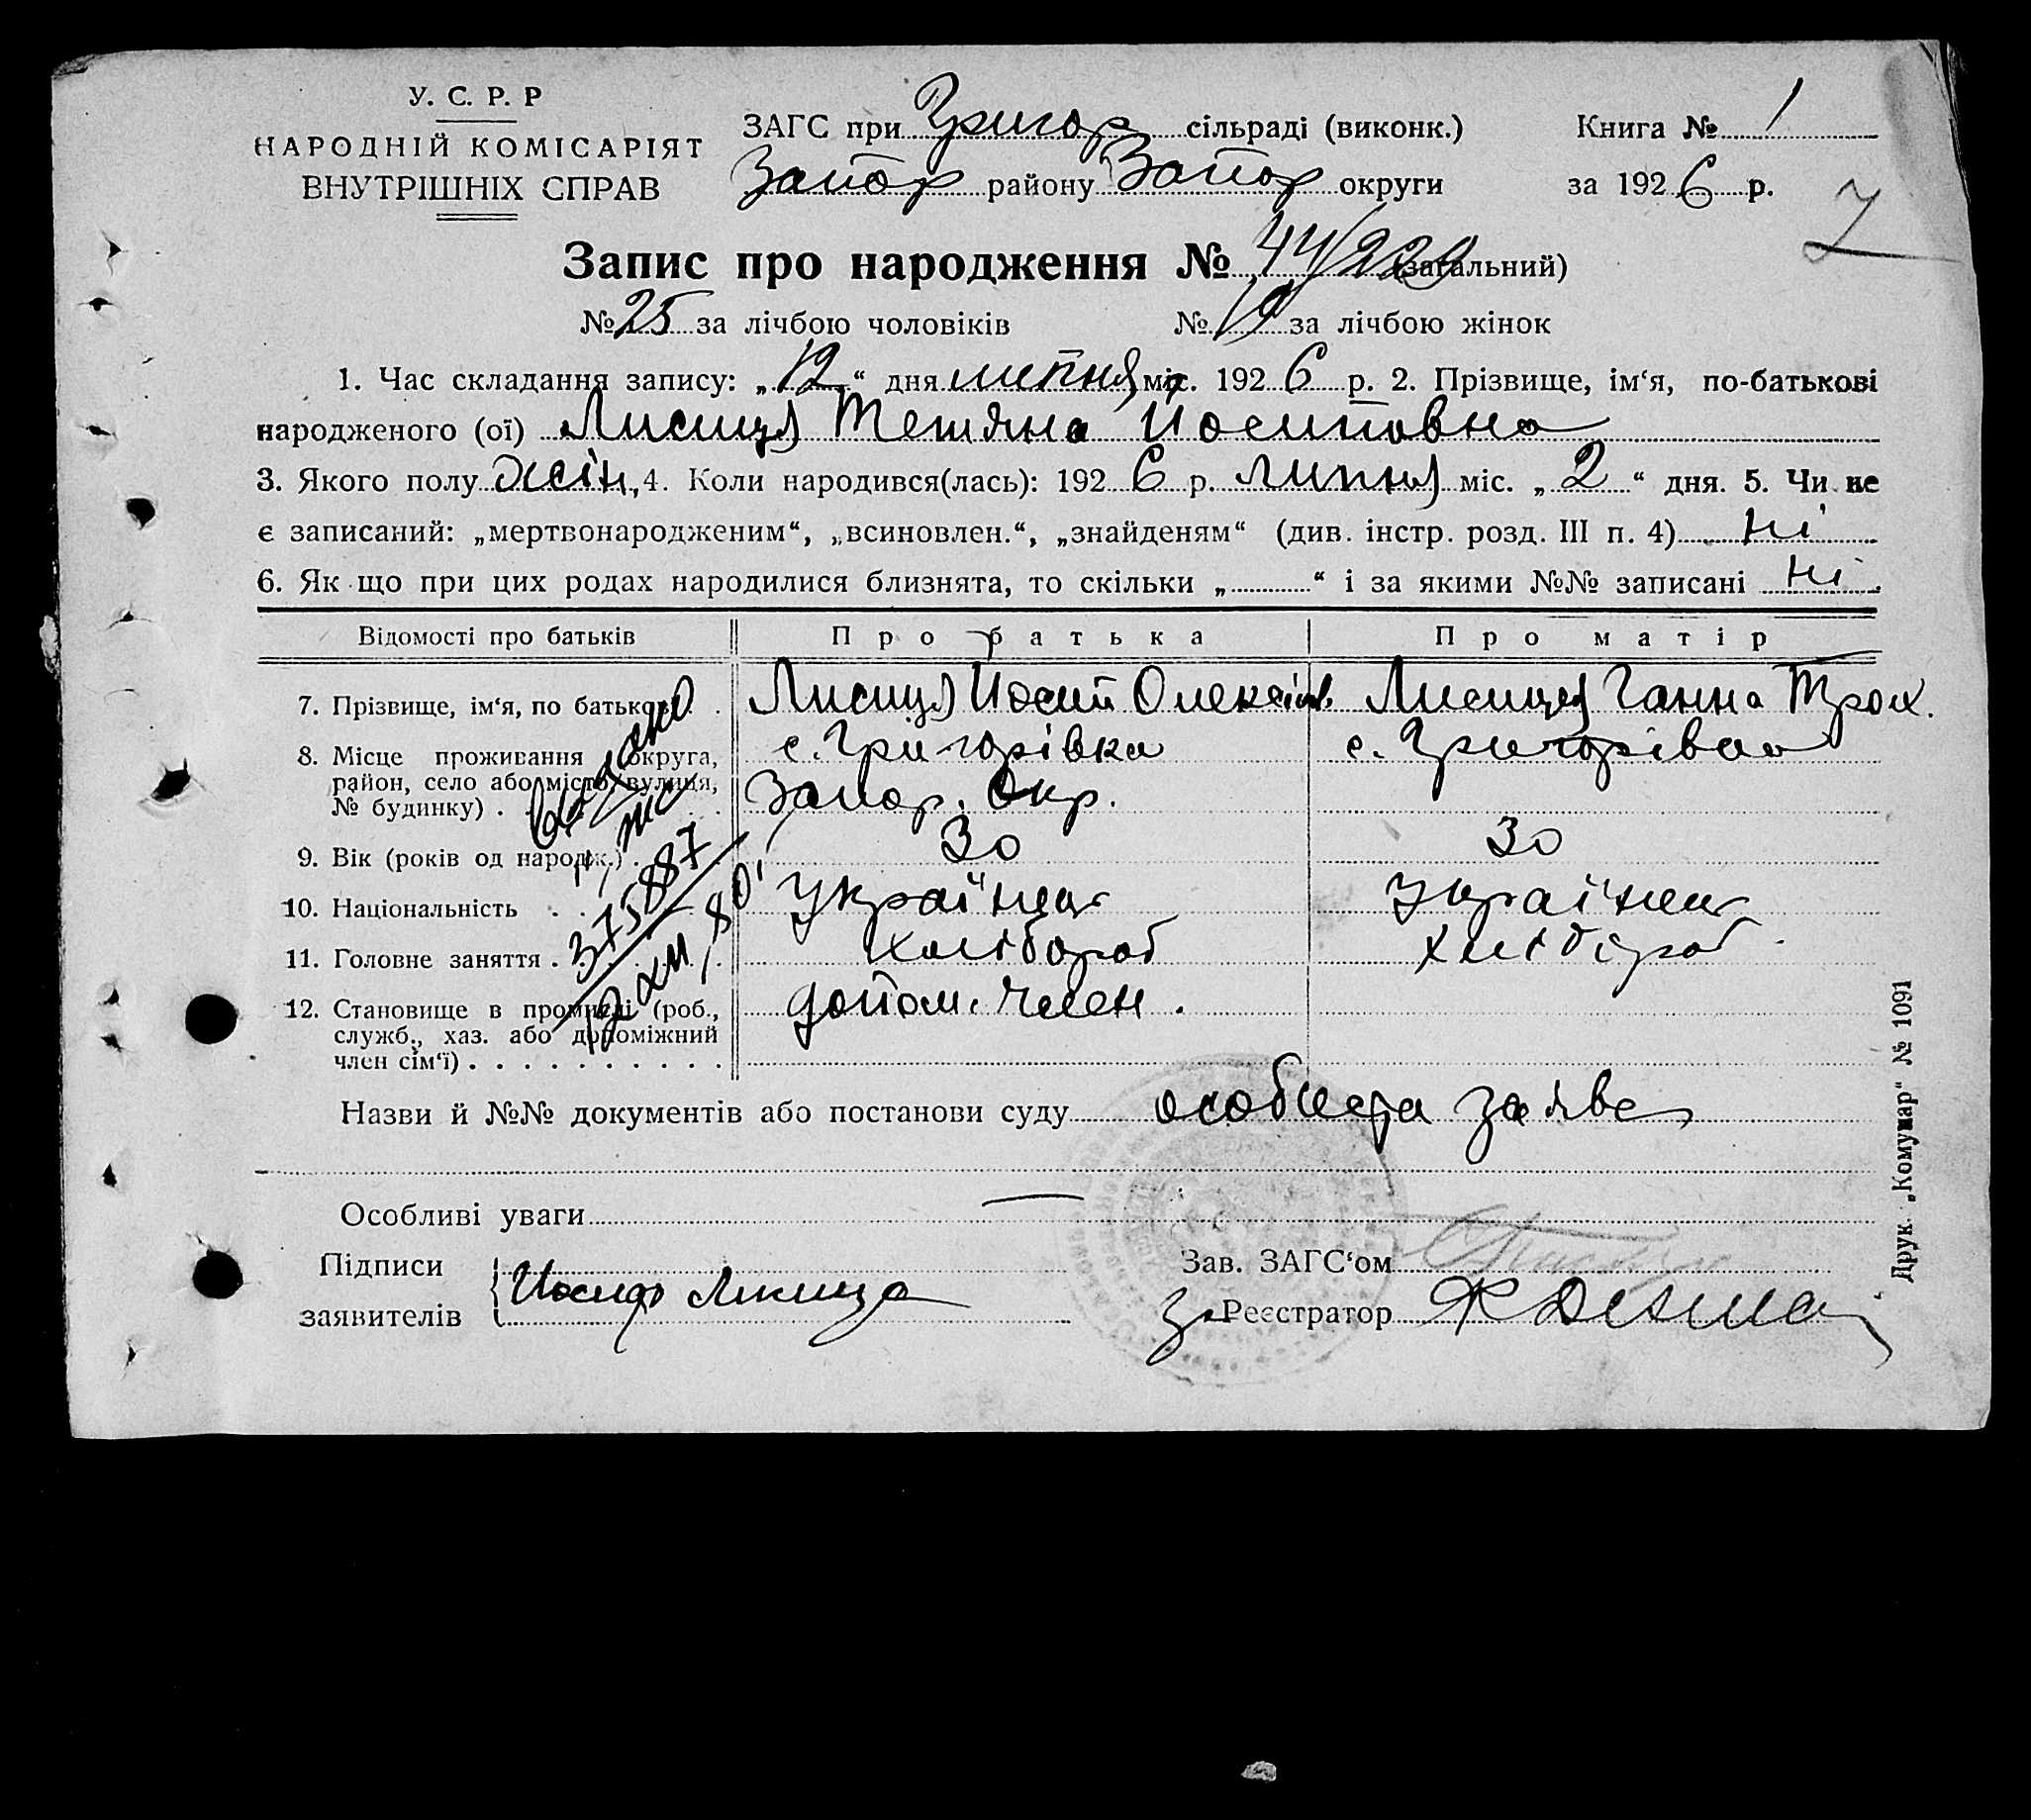 У. С. Р. Р
НАРОДНІЙ КОМІСАРІЯТ
ВНУТРІШНІХ СПРАВ
ЗАГС при Григор сільраді (виконк.) Книга № 1
Запор району Запор округи за 1926 р.
7
Запис про народження № 44/229 (загальний)
№ 25 за лічбою чоловіків № 19 за лічбою жінок
1. Час складання запису: „12“ дня липня міс. 1926 р. 2. Прізвище, ім‘я, по-батькові
народженого (ої) Лисиця Тетяна Йосиповна
3. Якого полу жін. 4. Коли народився(лась): 1926 р. липня міс. „2“ дня. 5. Чи не
є записаний: „мертвонародженим“, „всиновлен.“, „знайденям“ (див. інстр. розд. III п. 4) ні
6. Як що при цих родах народилися близнята, то скільки „ “ і за якими №№ записані ні
Відомості про батьків Про батька Про матір
7. Прізвище, ім‘я, по батькові Лисиця Йосип Олексіїв. Лисиця Ганна Трох.
8. Місце проживання (округа, с. Григорівка с. Григорівка
район, село або місто, вулиця, Запор. Окр.
№ будинку)
9. Вік (років од народж.) 30 30
10. Національність українец українец
11. Головне заняття хлібороб хлібороб
12. Становище в промислі (роб., допом. член.
служб., хаз. або допоміжний
член сім‘ї)
видано
375887
12 XII 80
Назви й №№ документів або постанови суду особиста заява
Особливі уваги —
Підписи
заявителів Иосиф Лисица
Зав. ЗАГС‘ом
За Реєстратор
Друк. „Комунар“ № 1091